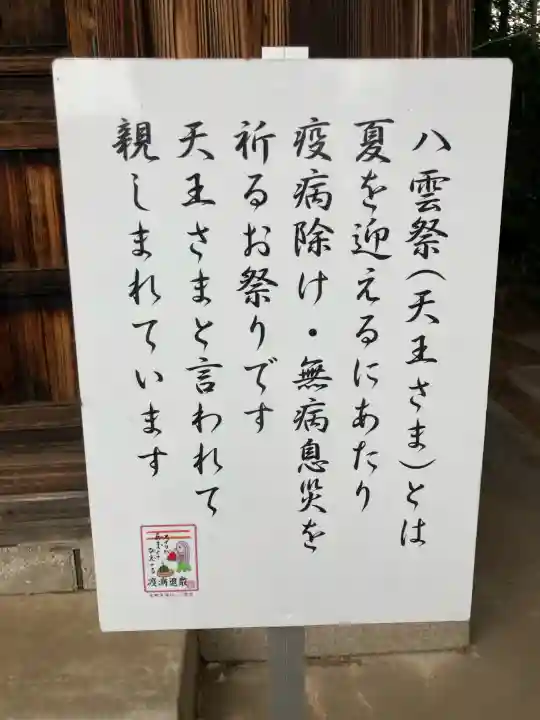 八雲祭(天王さま)とは
夏を迎えるにあたり
疫病除け・無病息災を
祈るお祭りです
天王さまと言われて
親しまれています
疫病退散